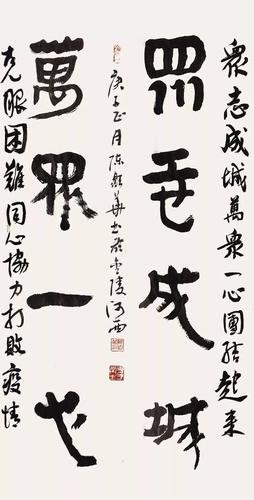 眾志成城萬眾一心團結起来
眾志成城
庚子正月陈華书於金陵河西
萬眾一心
克服困難同心協力打敗疫情